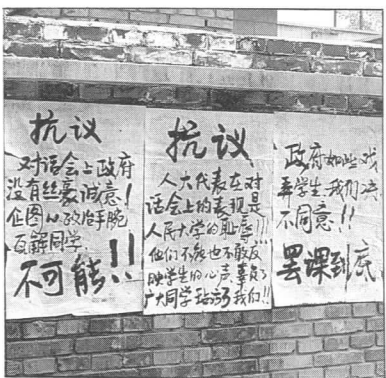 抗议
对话会上政府
没有丝毫诚意!
企图以政治手腕
瓦解同学
不可能!!
抗议
人大代表在对
话会上的表现是
人民大学的耻辱!!!
他们不能也不敢反
映学生的心声辜负了
广大同学 我们!!
政府如此戏
弄学生我们决
不同意!!
罢课到底